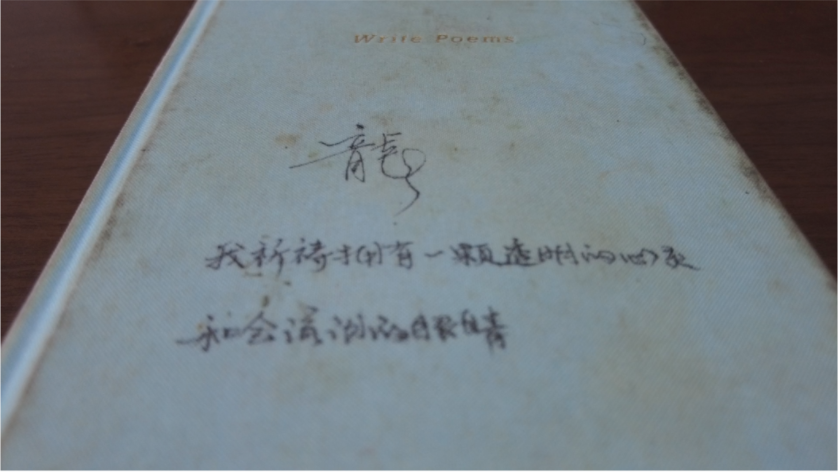 Write Poems
龍
我祈祷拥有一颗透明的心灵
和会流泪的眼睛